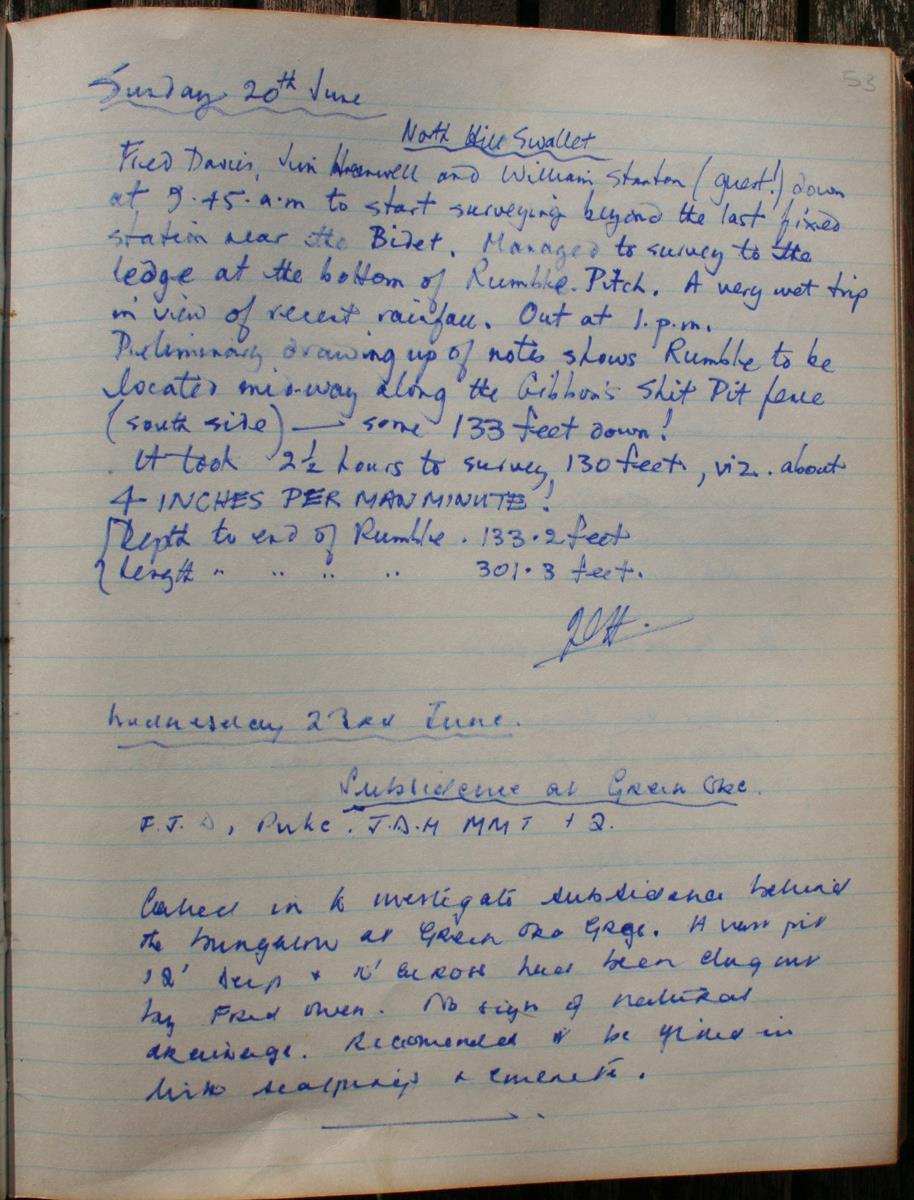 53
Sunday 20th June
North Hill Swallet
Fred Davies, Jim Hanwell and William Stanton (guest!) down
at 9.45.a.m to start surveying beyond the last fixed
station near the Bidet. Managed to survey to the
ledge at the bottom of Rumble Pitch. A very wet trip
in view of recent rainfall. Out at 1.p.m.
Preliminary drawing up of notes shows Rumble to be
located mid-way along the Gibbon's Shit Pit fence
(south side) — some 133 feet down!
It took 2½ hours to survey 130 feet, viz. about
4 INCHES PER MAN MINUTE!
Depth to end of Rumble . 133.2 feet
Length " " " " 301.3 feet.
Wednesday 23rd June.
Subsidence at Green Ore.
F.T.D, J.D.H MMT + 2.
Called in to investigate subsidence behind
the bungalow at Green Ore Grge. A vast pit
12' deep + 10' across had been dug out
by Fred Owen. No sign of natural
drainage. Recomended it be filled in
with scalpings + concrete.